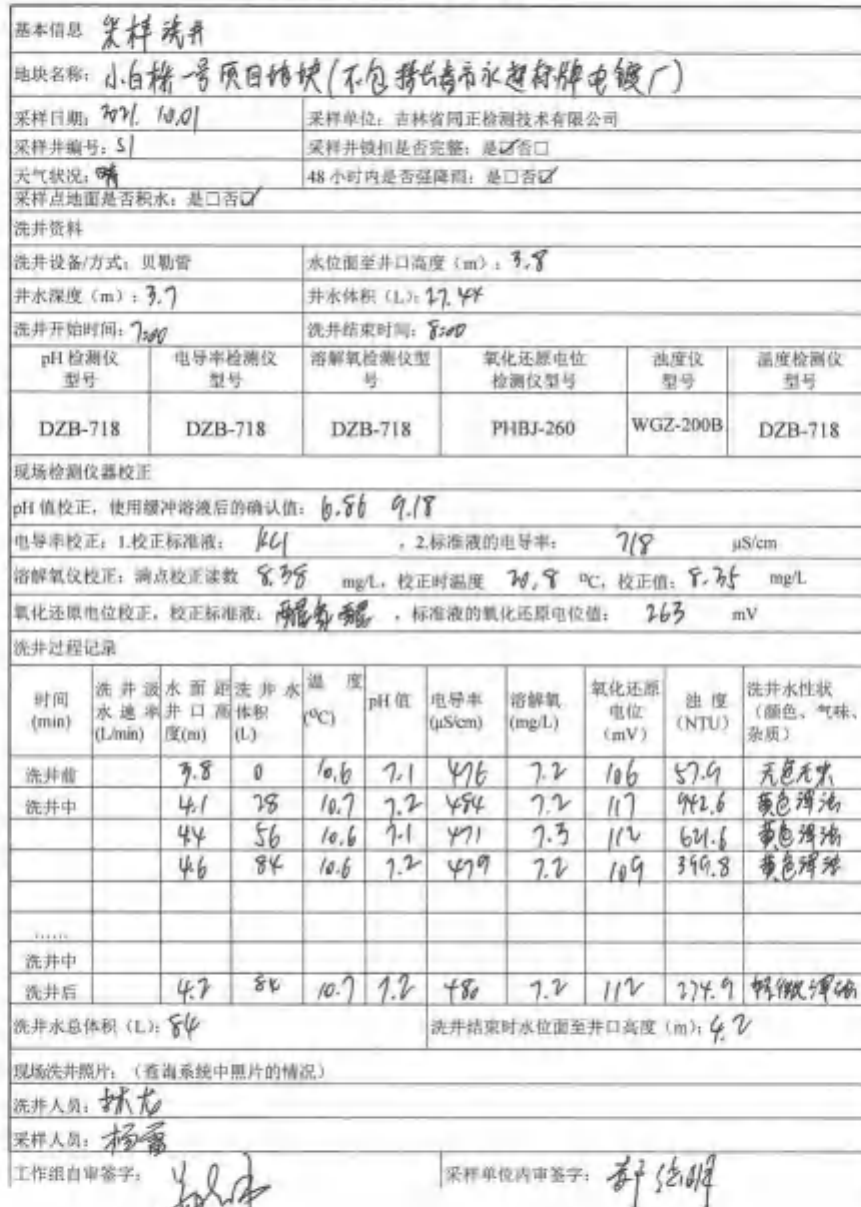 基本信息 采样洗井
地块名称：小白桦一号项目地块（不包括长春市永超标牌电镀厂）
采样日期：2021.10.01 采样单位：吉林省同正检测技术有限公司
采样井编号：S1 采样井锁扣是否完整：是☑否□
天气状况：晴 48 小时内是否强降雨：是□否☑
采样点地面是否积水：是□否☑
洗井资料
洗井设备/方式：贝勒管 水位面至井口高度（m）：3.8
井水深度（m）：3.7 井水体积（L）：27.44
洗井开始时间：7:00 洗井结束时间：8:00
pH 检测仪 电导率检测仪 溶解氧检测仪型 氧化还原电位 浊度仪 温度检测仪
型号 型号 号 检测仪型号 型号 型号
DZB-718 DZB-718 DZB-718 PHBJ-260 WGZ-200B DZB-718
现场检测仪器校正
pH 值校正，使用缓冲溶液后的确认值：6.86 9.18
电导率校正：1.校正标准液：KCl ，2.标准液的电导率：718 μS/cm
溶解氧仪校正：满点校正读数 8.38 mg/L，校正时温度 20.8 ⁰C，校正值：8.35 mg/L
氧化还原电位校正，校正标准液：醌氢醌 ，标准液的氧化还原电位值：263 mV
洗井过程记录
时间 洗井汲 水面距 洗井水 温度 pH 值 电导率 溶解氧 氧化还原 浊度 洗井水性状
(min) 水速率 井口高 体积 (⁰C) (μS/cm) (mg/L) 电位 (NTU) （颜色、气味、
(L/min) 度(m) (L) （mV） 杂质）
洗井前 3.8 0 10.6 7.1 476 7.2 106 57.9 无色无味
洗井中 4.1 28 10.7 7.2 484 7.2 117 942.6 黄色浑浊
4.4 56 10.6 7.1 471 7.3 112 621.6 黄色浑浊
4.6 84 10.6 7.2 479 7.2 109 399.8 黄色浑浊
……
洗井中
洗井后 4.2 84 10.7 7.2 480 7.2 112 274.9 轻微浑浊
洗井水总体积（L）：84 洗井结束时水位面至井口高度（m）：4.2
现场洗井照片：（查询系统中照片的情况）
洗井人员：林龙
采样人员：杨雷
工作组自审签字：
采样单位内审签字：